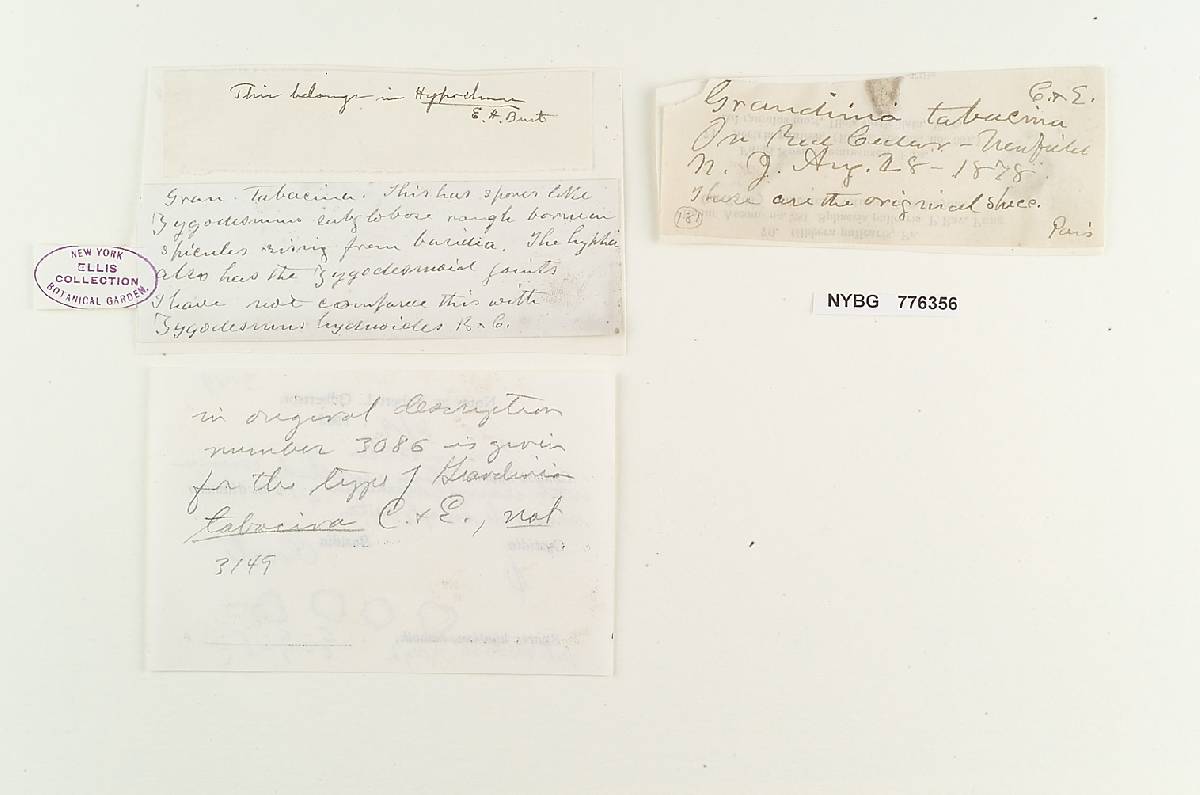 This belongs in Hypochnus
E. A. Burt
Gran. Tabacina. This has spores like
Zygodesmus subglobose rough borne on
spicules rising from basidia. The hyphae
also has the Zygodesmoid joints
I have not compared this with
Zygodesmus hydnoides B. & C.
NEW YORK
ELLIS
COLLECTION
BOTANICAL GARDEN.
in original description
number 3086 is given
for the type of Grandinia
tabacina C. & E., not
3149
C. & E.
Grandinia tabacina
On Red Cedar - Newfield
N. J. Aug. 28 - 1878.
These are the original spec.
Paris
NYBG 776356